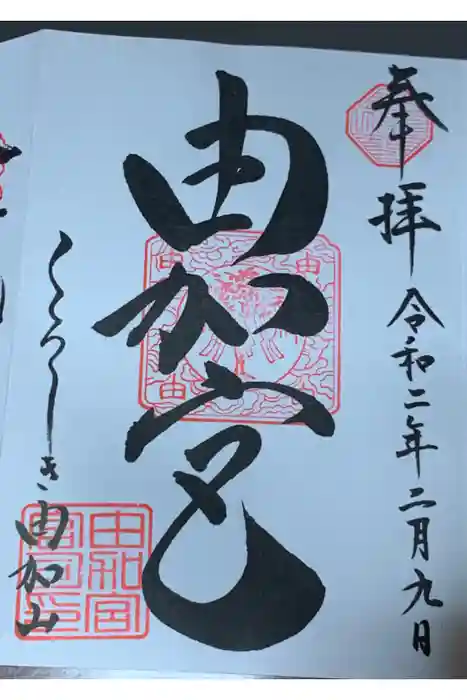 奉拝
令和二年二月九日
由加宮
由
由
由
くらしき由加山